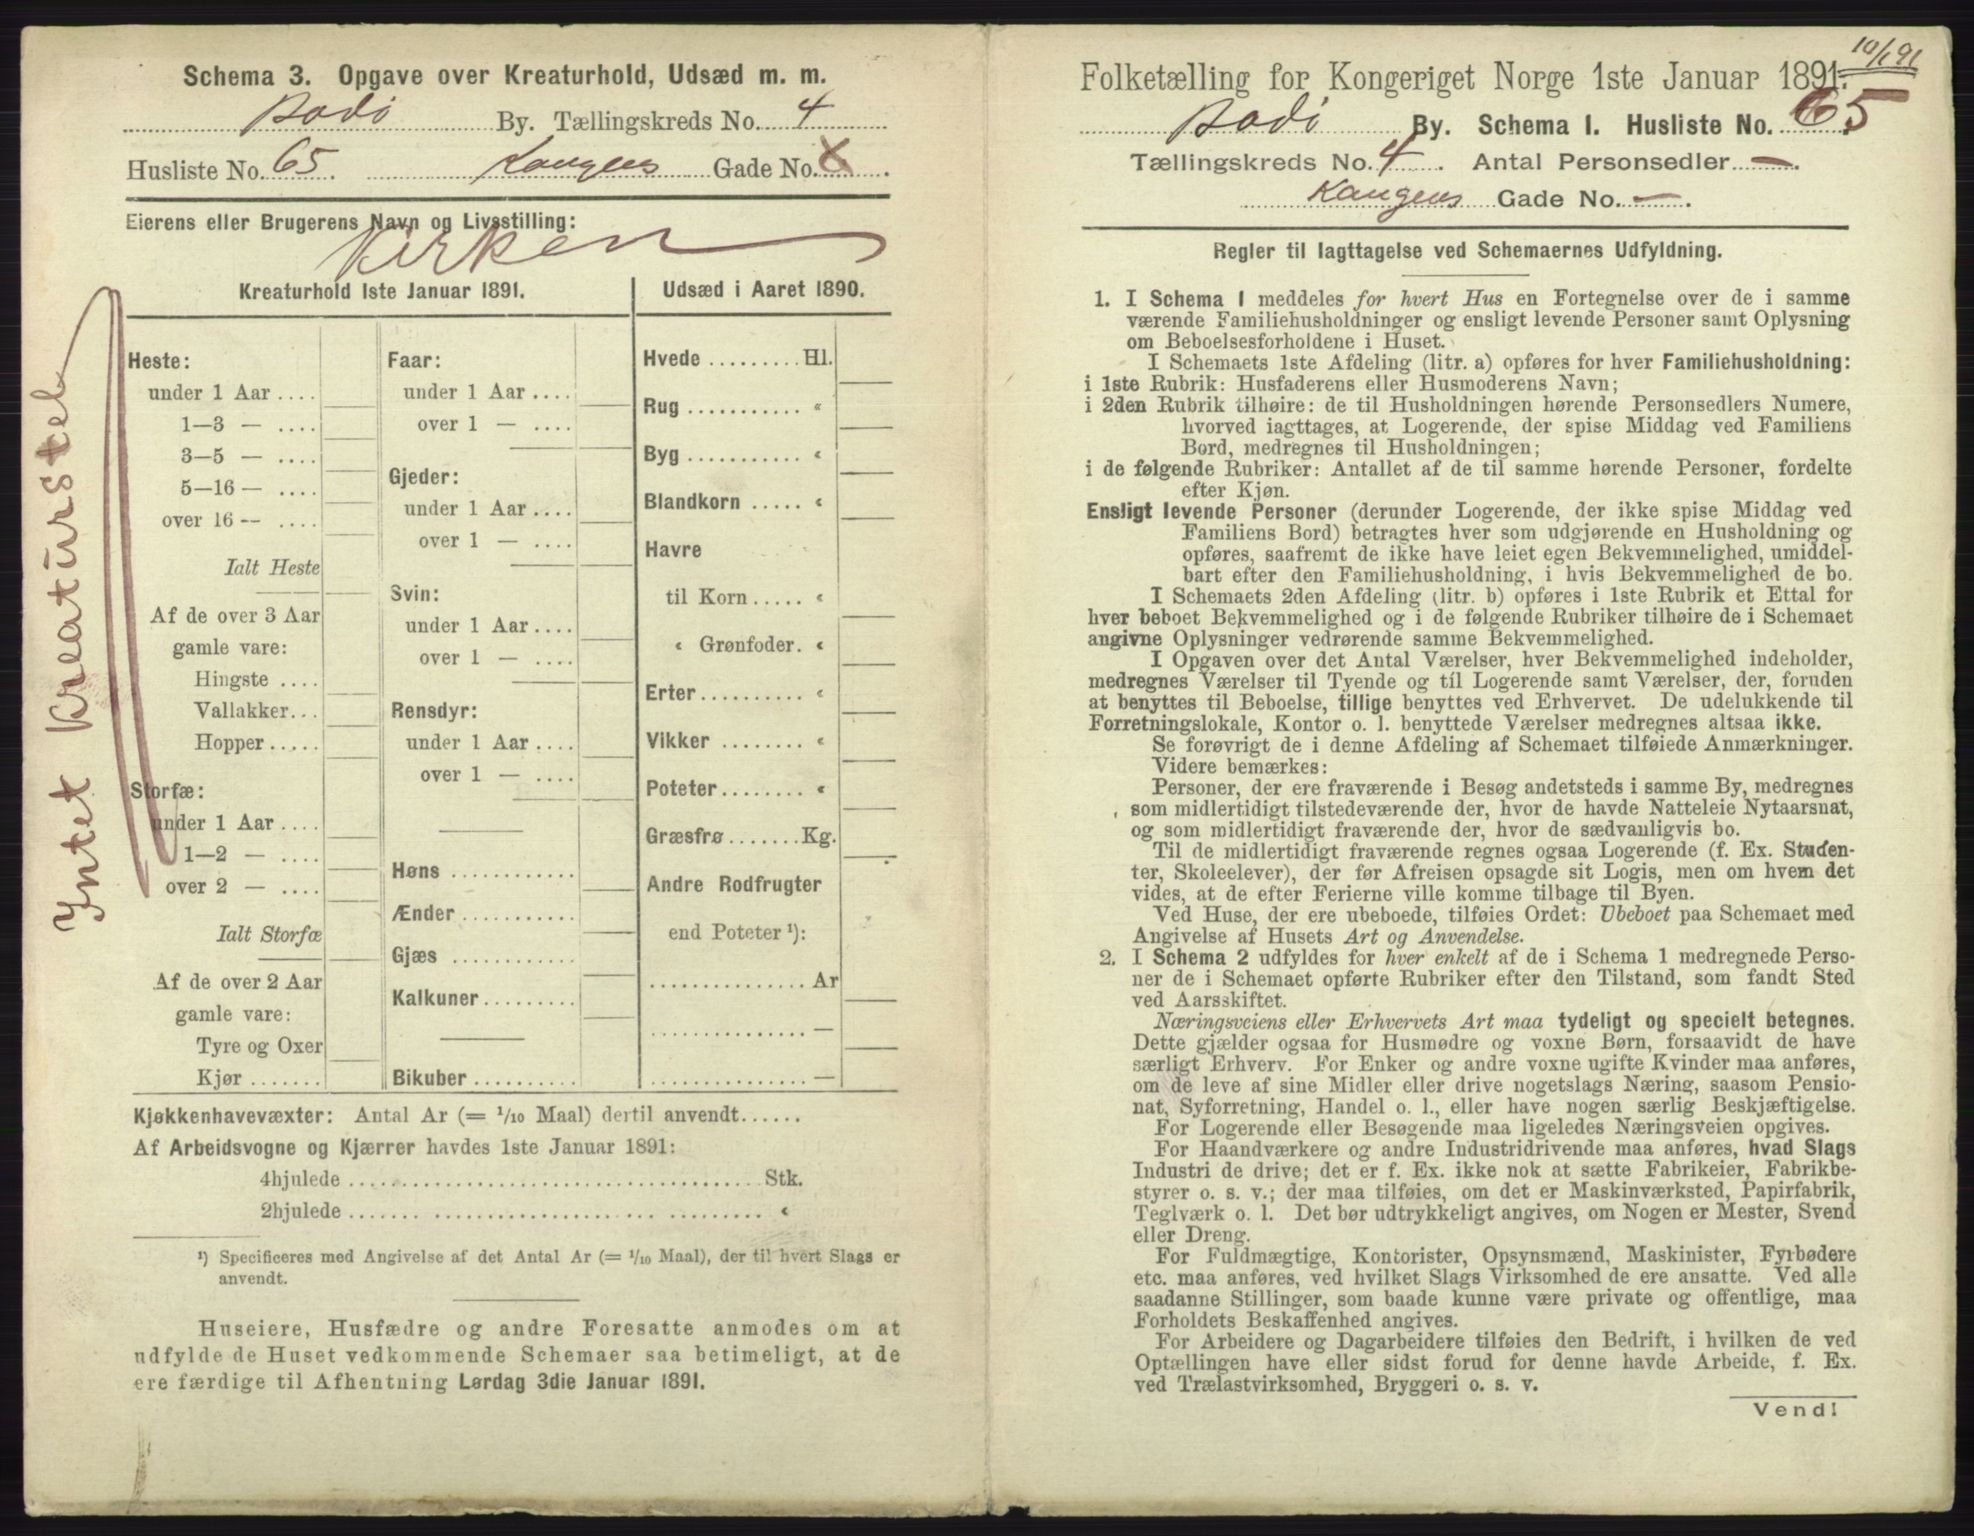 Schema 3. Opgave over Kreaturhold, Udsæd m. m.
Bodö By. Tællingskreds No. 4
Husliste No. 65. Kongens Gade No.
Eierens eller Brugerens Navn og Livsstilling:
Kirken
Intet Kreaturstel
Kreaturhold 1ste Januar 1891.
Heste:
under 1 Aar ....
1—3 — ....
3—5 — ....
5—16 — ....
over 16 -- ....
Ialt Heste
Af de over 3 Aar
gamle vare:
Hingste ....
Vallakker...
Hopper.....
Storfæ:
under 1 Aar ....
1—2 — ....
over 2 — ....
Ialt Storfæ
Af de over 2 Aar
gamle vare:
Tyre og Oxer
Kjør .......
Faar:
under 1 Aar ....
over 1 — ....
Gjeder:
under 1 Aar ....
over 1 — ....
Svin:
under 1 Aar ....
over 1 — ....
Rensdyr:
under 1 Aar ....
over 1 — ....
Høns ............
Ænder ...........
Gjæs ............
Kalkuner.........
Bikuber ..........
Udsæd i Aaret 1890.
Hvede ......... Hl.
Rug ........... «
Byg ........... «
Blandkorn ..... «
Havre
til Korn ..... «
« Grønfoder. «
Erter.......... «
Vikker ........ «
Poteter........ «
Græsfrø .......Kg.
Andre Rodfrugter
end Poteter ¹):
............... Ar
............... —
............... —
Kjøkkenhavevæxter: Antal Ar (= 1/10 Maal) dertil anvendt......
Af Arbeidsvogne og Kjærrer havdes 1ste Januar 1891:
4hjulede ........................................ Stk.
2hjulede ........................................ «
¹) Specificeres med Angivelse af det Antal Ar (= 1/10 Maal), der til hvert Slags er
anvendt.
Huseiere, Husfædre og andre Foresatte anmodes om at
udfylde de Huset vedkommende Schemaer saa betimeligt, at de
ere færdige til Afhentning Lørdag 3die Januar 1891.
10/1 91
Folketælling for Kongeriget Norge 1ste Januar 1891.
Bodö By. Schema 1. Husliste No. 65
Tællingskreds No. 4. Antal Personsedler —.
Kongens Gade No. —.
Regler til Iagttagelse ved Schemaernes Udfyldning.
1. I Schema 1 meddeles for hvert Hus en Fortegnelse over de i samme
værende Familiehusholdninger og ensligt levende Personer samt Oplysning
om Beboelsesforholdene i Huset.
I Schemaets 1ste Afdeling (litr. a) opføres for hver Familiehusholdning:
i 1ste Rubrik: Husfaderens eller Husmoderens Navn;
i 2den Rubrik tilhøire: de til Husholdningen hørende Personsedlers Numere,
hvorved iagttages, at Logerende, der spise Middag ved Familiens
Bord, medregnes til Husholdningen;
i de følgende Rubriker: Antallet af de til samme hørende Personer, fordelte
efter Kjøn.
Ensligt levende Personer (derunder Logerende, der ikke spise Middag ved
Familiens Bord) betragtes hver som udgjørende en Husholdning og
opføres, saafremt de ikke have leiet egen Bekvemmelighed, umiddel-
bart efter den Familiehusholdning, i hvis Bekvemmelighed de bo.
I Schemaets 2den Afdeling (litr. b) opføres i 1ste Rubrik et Ettal for
hver beboet Bekvemmelighed og i de følgende Rubriker tilhøire de i Schemaet
angivne Oplysninger vedrørende samme Bekvemmelighed.
I Opgaven over det Antal Værelser, hver Bekvemmelighed indeholder,
medregnes Værelser til Tyende og til Logerende samt Værelser, der, foruden
at benyttes til Beboelse, tillige benyttes ved Erhvervet. De udelukkende til
Forretningslokale, Kontor o. l. benyttede Værelser medregnes altsaa ikke.
Se forøvrigt de i denne Afdeling af Schemaet tilføiede Anmærkninger.
Videre bemærkes:
Personer, der ere fraværende i Besøg andetsteds i samme By, medregnes
som midlertidigt tilstedeværende der, hvor de havde Natteleie Nytaarsnat,
og som midlertidigt fraværende der, hvor de sædvanligvis bo.
Til de midlertidigt fraværende regnes ogsaa Logerende (f. Ex. Studen-
ter, Skoleelever), der før Afreisen opsagde sit Logis, men om hvem det
vides, at de efter Ferierne ville komme tilbage til Byen.
Ved Huse, der ere ubeboede, tilføies Ordet: Ubeboet paa Schemaet med
Angivelse af Husets Art og Anvendelse.
2. I Schema 2 udfyldes for hver enkelt af de i Schema 1 medregnede Perso-
ner de i Schemaet opførte Rubriker efter den Tilstand, som fandt Sted
ved Aarsskiftet.
Næringsveiens eller Erhvervets Art maa tydeligt og specielt betegnes.
Dette gjælder ogsaa for Husmødre og voxne Børn, forsaavidt de have
særligt Erhverv. For Enker og andre voxne ugifte Kvinder maa anføres,
om de leve af sine Midler eller drive nogetslags Næring, saasom Pensio-
nat, Syforretning, Handel o. l., eller have nogen særlig Beskjæftigelse.
For Logerende eller Besøgende maa ligeledes Næringsveien opgives.
For Haandværkere og andre Industridrivende maa anføres, hvad Slags
Industri de drive; det er f. Ex. ikke nok at sætte Fabrikeier, Fabrikbe-
styrer o. s. v.; der maa tilføies, om det er Maskinværksted, Papirfabrik,
Teglværk o. l. Det bør udtrykkeligt angives, om Nogen er Mester, Svend
eller Dreng.
For Fuldmægtige, Kontorister, Opsynsmænd, Maskinister, Fyrbødere
etc. maa anføres, ved hvilket Slags Virksomhed de ere ansatte. Ved alle
saadanne Stillinger, som baade kunne være private og offentlige, maa
Forholdets Beskaffenhed angives.
For Arbeidere og Dagarbeidere tilføies den Bedrift, i hvilken de ved
Optællingen have eller sidst forud for denne havde Arbeide, f. Ex.
ved Trælastvirksomhed, Bryggeri o. s. v.
Vend!